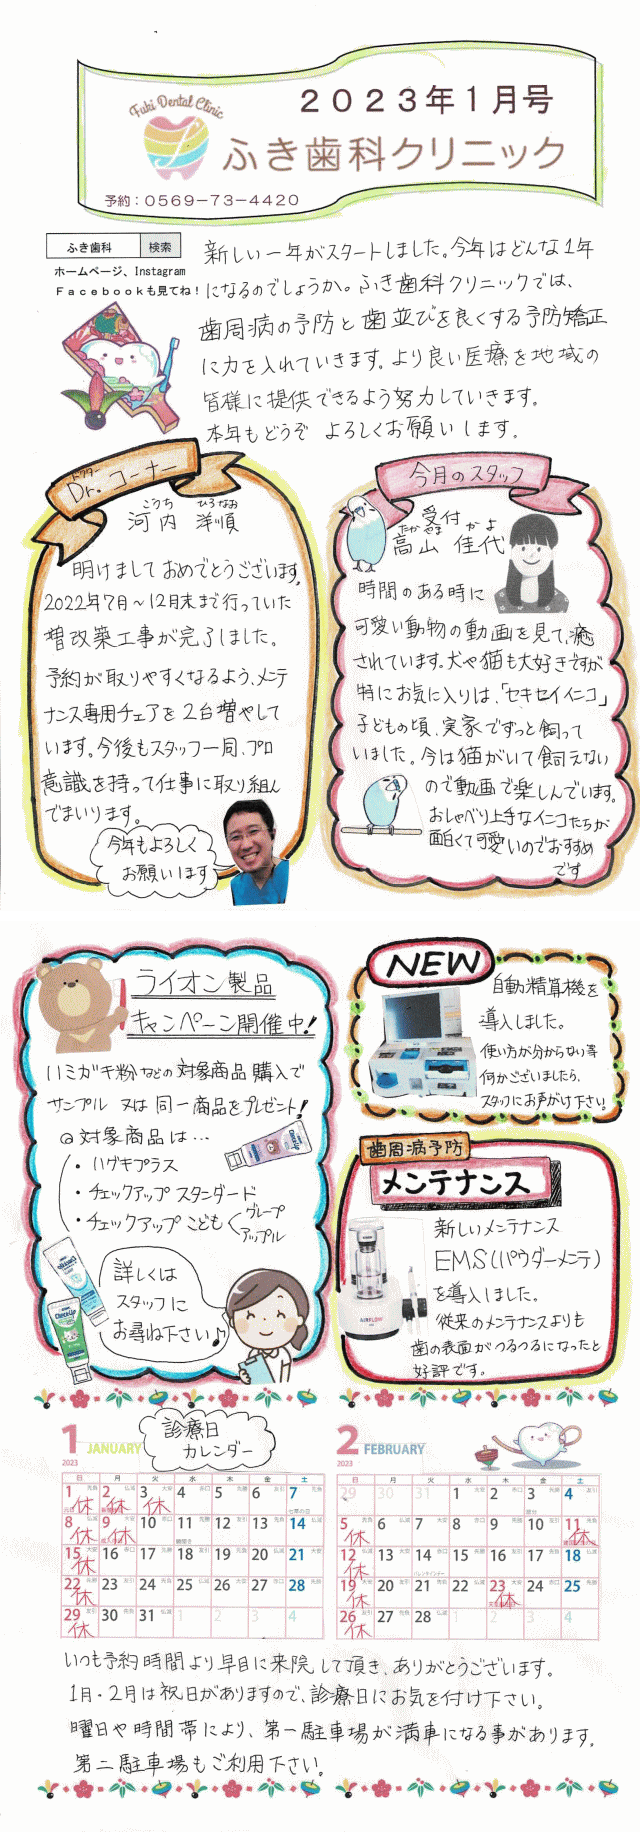 ２０２３年１月号
Fuki Dental Clinic
ふき歯科クリニック
予約：０５６９－７３－４４２０
ふき歯科 検索
ホームページ、Instagram
Ｆａｃｅｂｏｏｋも見てね！
新しい一年がスタートしました。今年はどんな1年
になるのでしょうか。ふき歯科クリニックでは、
歯周病の予防と歯並びを良くする予防矯正
に力を入れていきます。より良い医療を地域の
皆様に提供できるよう努力していきます。
本年もどうぞ よろしくお願いします。
ドクター
Dr. コーナー
こうち ひろなお
河内 洋順
明けましておめでとうございます。
2022年7月～12月末まで行っていた
増改築工事が完了しました。
予約が取りやすくなるよう、メンテ
ナンス専用チェアを2台増やして
います。今後もスタッフ一同、プロ
意識を持って仕事に取り組ん
でまいります。
今年もよろしく
お願いします
今月のスタッフ
受付
たかやま かよ
高山 佳代
時間のある時に
可愛い動物の動画を見て、癒
されています。犬や猫も大好きですが
特にお気に入りは、「セキセイインコ」
子どもの頃、実家でずっと飼って
いました。今は猫がいて飼えない
ので動画で楽しんでいます。
おしゃべり上手なインコたちが
面白くて可愛いのでおすすめ
です
ライオン製品
キャンペーン開催中！
ハミガキ粉などの対象商品購入で
サンプル 又は同一商品をプレゼント！
◎対象商品は…
・ハグキプラス
・チェックアップ スタンダード
・チェックアップ こども グレープ
アップル
詳しくは
スタッフに
お尋ね下さい♪
NEW
自動精算機を
導入しました。
使い方が分からない等
何かございましたら、
スタッフにお声がけ下さい！
歯周病予防
メンテナンス
新しいメンテナンス
EMS（パウダーメンテ）
を導入しました。
従来のメンテナンスよりも
歯の表面がつるつるになったと
好評です。
AIRFLOW
診療日
カレンダー
1 JANUARY
2023
日 月 火 水 木 金 土
1休 2休 3休 4 5 6 7
8休 9休 10 11 12 13 14
15休 16 17 18 19 20 21
22休 23 24 25 26 27 28
29休 30 31 1 2 3 4
2 FEBRUARY
2023
日 月 火 水 木 金 土
29 30 31 1 2 3 4
5休 6 7 8 9 10 11休
12休 13 14 15 16 17 18
19休 20 21 22 23休 24 25
26休 27 28 1 2 3 4
いつも予約時間より早目に来院して頂き、ありがとうございます。
1月・2月は祝日がありますので、診療日にお気を付け下さい。
曜日や時間帯により、第一駐車場が満車になる事があります。
第二駐車場もご利用下さい。